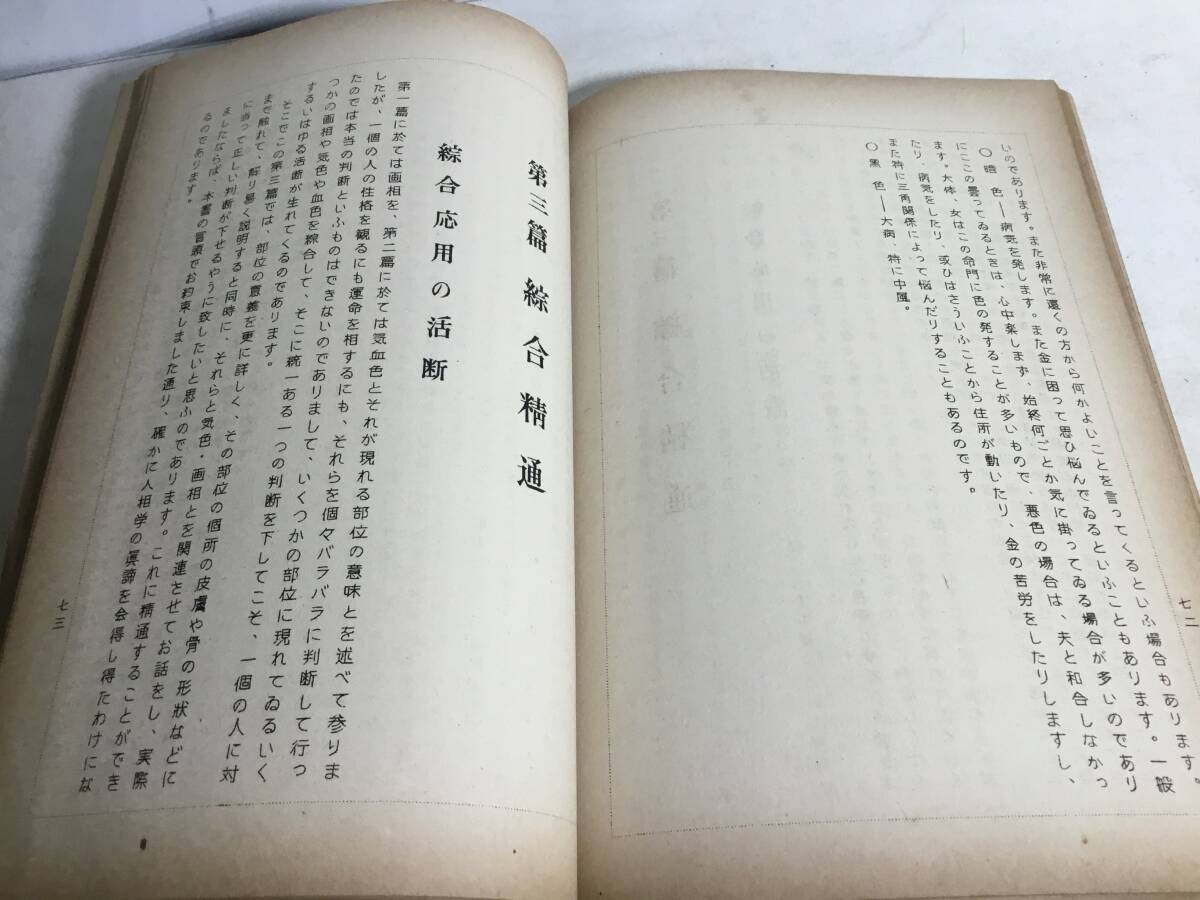 いのであります。また非常に遠くの方から何かよいことを言ってくるといふ場合もあります。
〇暗色――病気を発します。また金に困って思ひ悩んでゐるといふこともあります。一般
にここの曇ってゐるときは、心中楽します、始終何ごとか気に掛ってゐる場合が多いのであり
ます。大体、女はこの命門に色の発することが多いもので、悪色の場合は、夫と和合しなかっ
たり、病気をしたり、或ひはさういふことから住所が動いたり、金の苦労をしたりしますし、
また特に三角関係によって悩んだりすることもあるのです。
〇黒色――大病、特に中風。
七二
第三篇 綜合精通
綜合応用の活断
第一篇に於ては画相を、第二篇に於ては気血色とそれが現れる部位の意味とを述べて参りま
したが、一個の人の性格を観るにも運命を相するにも、それらを個々バラバラに判断して行っ
たのでは本当の判断といふものはできないのでありまして、いくつかの部位に現れてゐるいく
つかの画相や気色や血色を綜合して、そこに統一ある一つの判断を下してこそ、一個の人に対
するいはゆる活断が生れてくるのであります。
そこでこの第三篇では、部位の意義を更に詳しく、その部位の個所の皮膚や骨の形狀などに
まで触れて、解り易く説明すると同時に、それらと気色・画相とを関連させてお話をし、実際
に当って正しい判断が下せるやうに致したいと思ふのであります。これに精通することができ
ましたならば、本書の冒頭でお約束しました通り、確かに人相学の眞諦を会得し得たわけにな
るのであります。
七三